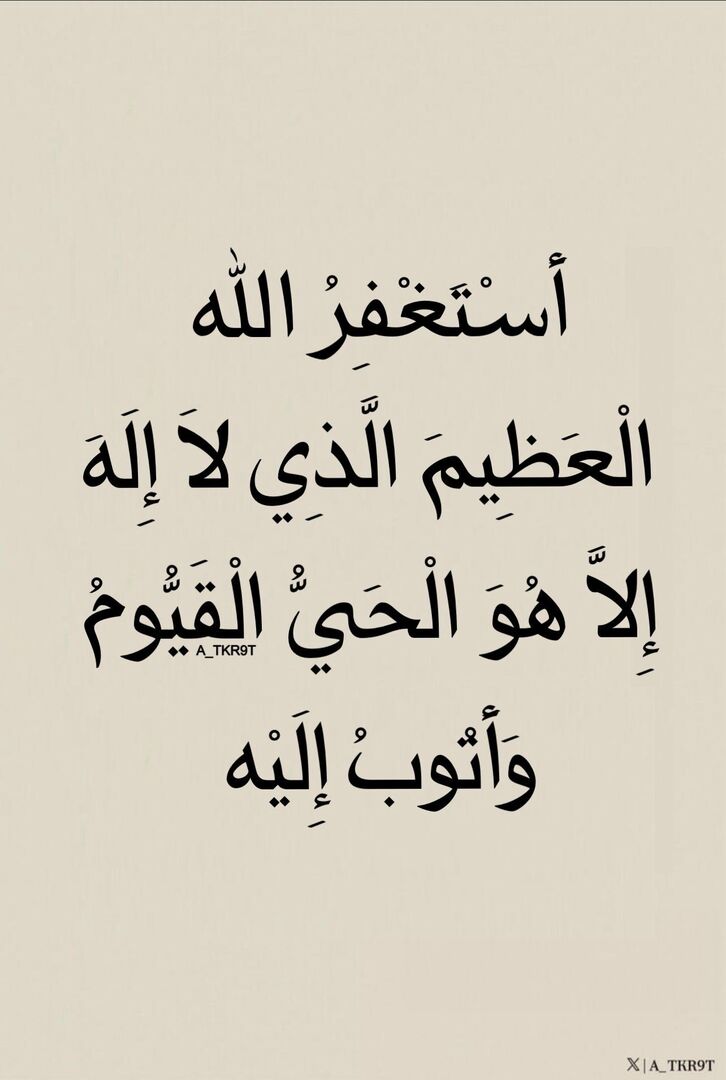 أسْتَغْفِرُ اللّٰه
الْعَظِيمَ الَّذِي لاَ إِلَهَ
إِلاَّ هُوَ الْحَيُّ الْقَيُّومُ
A_TKR9T
وَأَتُوبُ إِلَيْه
𝕏 | A_TKR9T